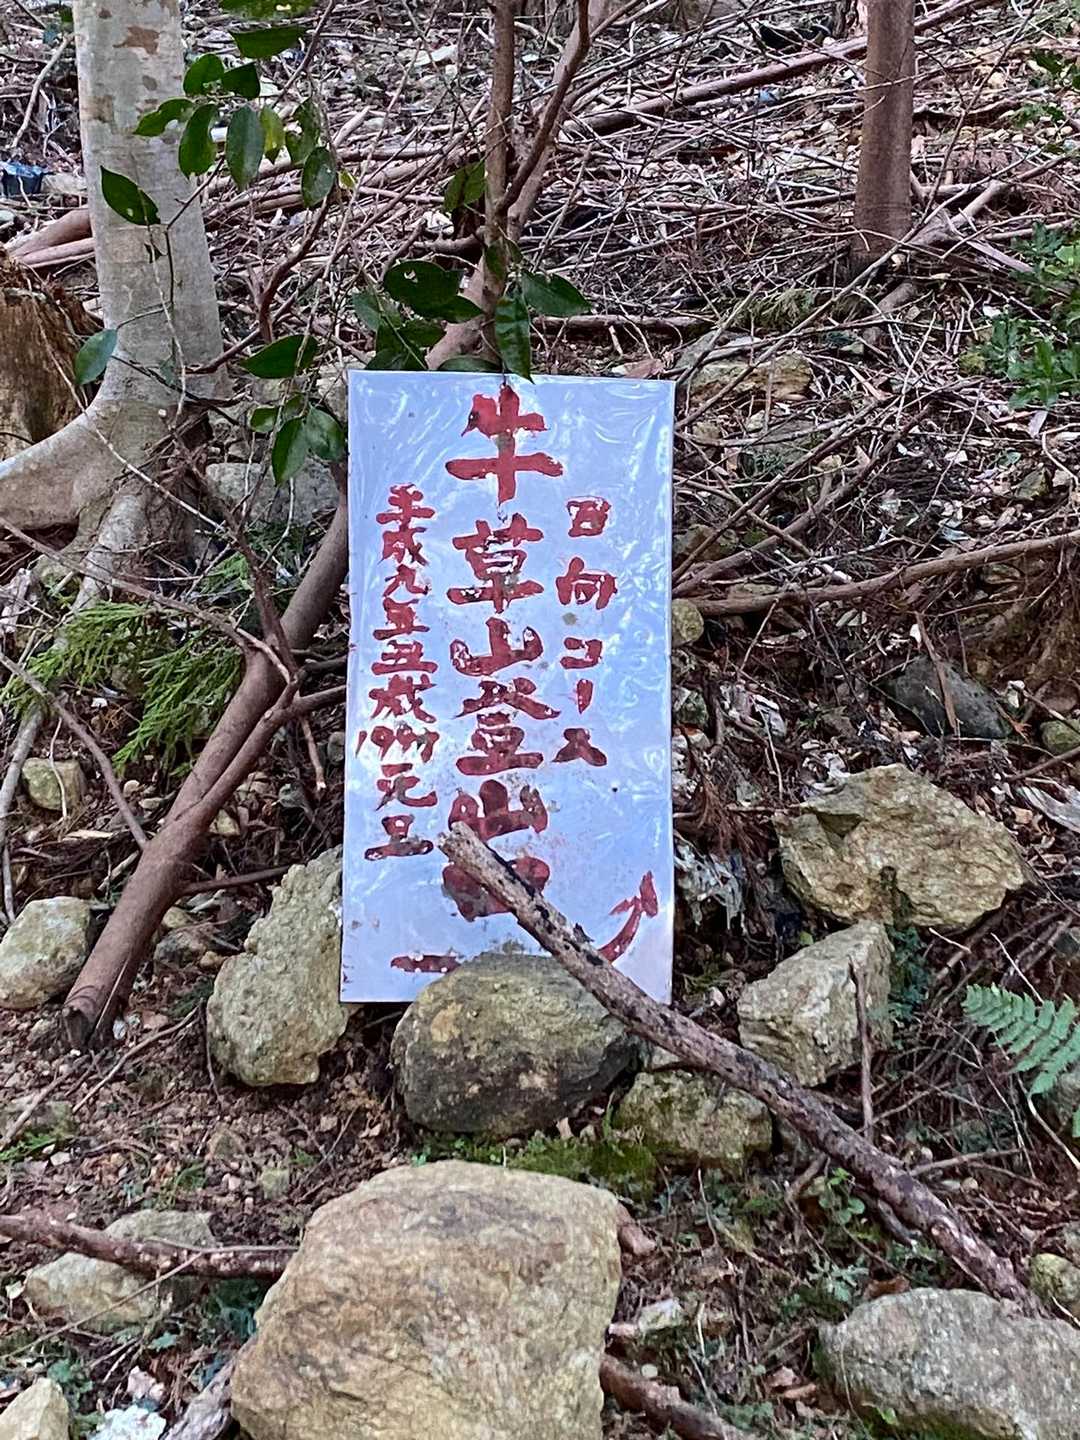 日向コース
牛草山登山口
平成九年丑歳1997元旦